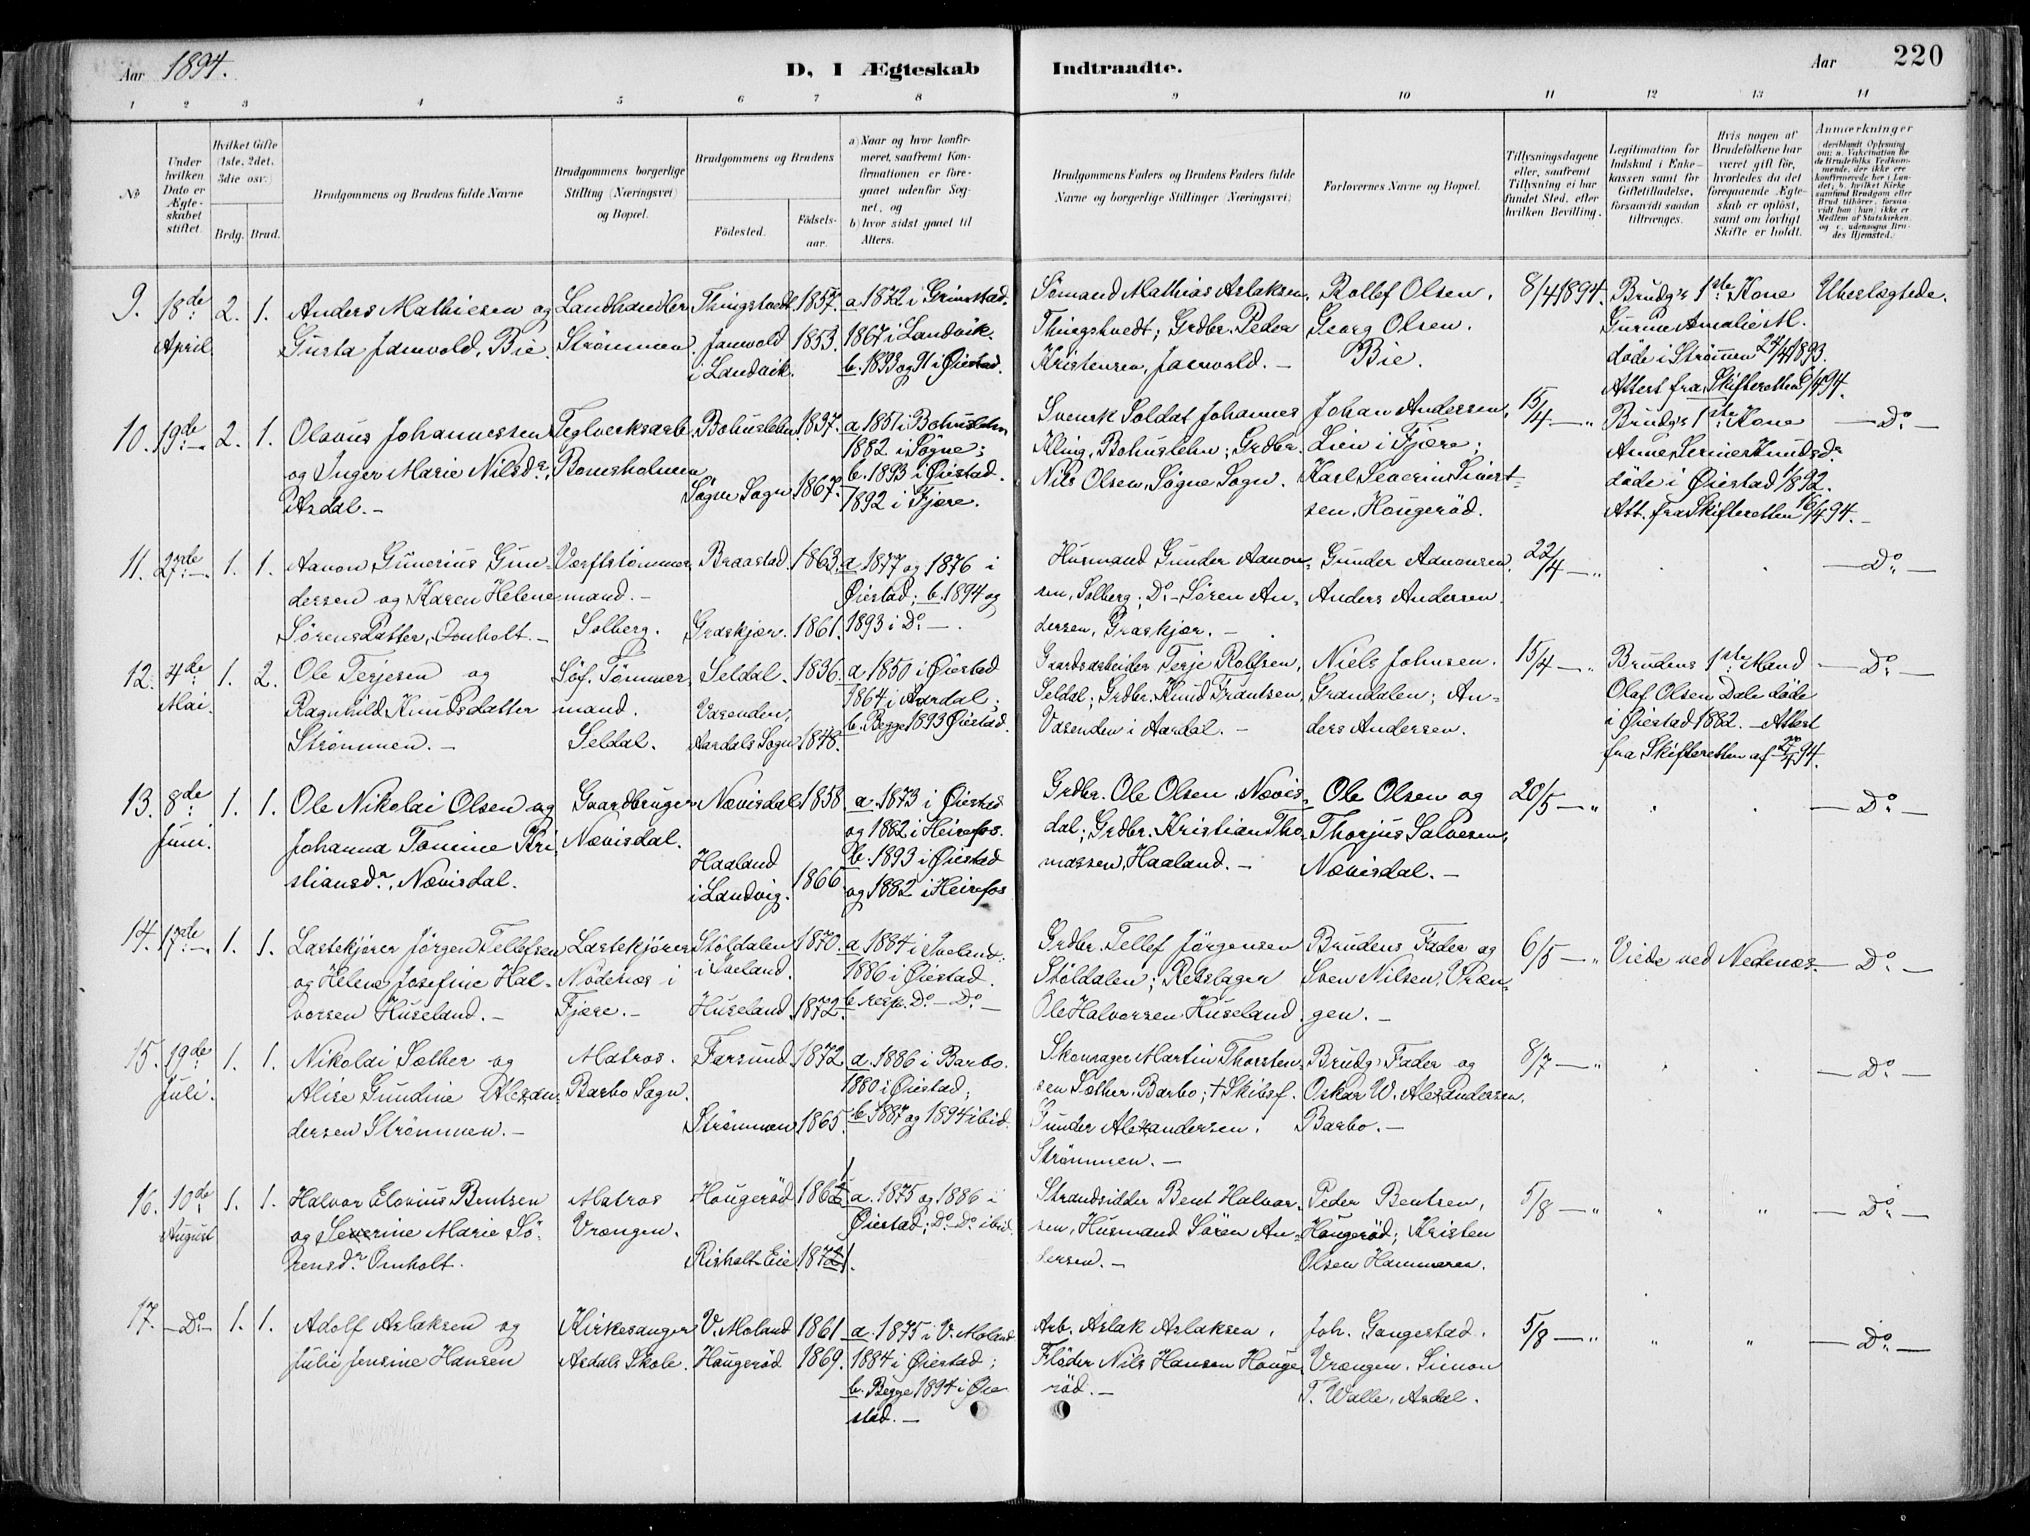 Aar 1894.
D, I Ægteskab Indtraadte.
Aar 220
1 2 3 4 5 6 7 8 9 10 11 12 13 14
No
Under hvilken Dato er Ægteskabet stiftet.
Hvilket Gifte (1ste, 2det, 3die osv.)
Brdg. Brud.
Brudgommens og Brudens fulde Navne
Brudgommens borgerlige Stilling (Næringsvei) og Bopæl.
Brudgommens og Brudens
Fødested. Fødsels-aar.
a) Naar og hvor konfirmeret, saafremt Konfirmationen er foregaaet udenfor Sognet, og
b) hvor sidst gaaet til Alters.
Brudgommens Faders og Brudens Faders fulde Navne og borgerlige Stillinger (Næringsvei)
Forlovernes Navne og Bopæl.
Tillysningsdagene eller, saafremt Tillysning ei har fundet Sted, efter hvilken Bevilling.
Legitimation for Indskud i Enkekassen samt for Giftetilladelse, forsaavidt saadan tiltrænges.
Hvis nogen af Brudefolkene har været gift før, hvorledes da det foregaaende Ægteskab er opløst, samt om lovligt Skifte er holdt.
Anmærkninger (deriblandt Oplysning om: a. Vakcination for de Brudefolks Vedkommende, der ikke ere konfirmerede her i Landet; b. hvilket Kirkesamfund Brudgom eller Brud tilhører, forsaavidt han (hun) ikke er Medlem af Statskirken, og c. udensogns Brudes Hjemsted.)
9. 18de April 2. 1.
Anders Mathiesen og
Gusta Janvold, Bie.
Landhandler
Strømmen.
Thingstvedt 1857.
Janvold 1853.
i Landvik.
a 1872 i Grimstad.
1867 i Landvik.
b. 1893 og 91 i Øiestad.
Sømand Mathias Aslaksen,
Thingstvedt; Grdbr. Peder
Kristensen, Janvold. —
Rollef Olsen,
Georg Olsen.
Bie.
8/4 1894.
Brudg's 1ste Kone
Gurine Amalie M.
døde i Strømmen 24/4 1893.
Attest fra Skifteretten 6/4 94.
Ubeslægtede.
10. 19de — 2. 1.
Olavus Johannessen
og Inger Marie Nilsdr,
Asdal. —
Teglverksarb.
Bomsholmen
Bohuslehn 1837.
Søgne Sogn 1867.
a 1851 i Bohuslehn
1882 i Søgne;
b. 1893 i Øiestad.
1892 i Fjære.
Svensk Soldat Johannes
Kling, Bohuslehn; Grdbr.
Nils Olsen, Søgne Sogn.
Johan Andersen,
Lien i Fjære;
Karl Severin Sivert-
sen, Hougerød.
15/4 — "
Brudg's 1ste Kone
Anne Serine Knudsdr
døde i Øiestad 1/1892.
Att. fra Skifteretten 16/4 94. —
— Do —
11. 27de — 1. 1.
Aanon Gunerius Gun-
dersen og Karen Helene
Sørensdatter, Omholt. —
Verftstømmer-
mand. —
Solberg.
Braastad 1863.
Graskjær. 1861.
a 1877 og 1876 i
Øiestad; b. 1894 og
1893 i Do —.
Husmand Gunder Aanon-
sen, Solberg; Do — Søren An-
dersen, Graskjær. —
Gunder Aanonsen.
Anders Andersen.
22/4 — "
— Do —
12. 4de Mai. 1. 2.
Ole Terjesen og
Ragnhild Knudsdatter
Strømmen. —
Søf. Tømmer-
mand.
Seldal.
Seldal. 1836.
Vasenden,
Aardals Sogn 1848.
a 1850 i Øiestad
1864 i Aardal;
b. Begge 1893 Øiestad.
Gaardsarbeider Terje Rolfsen,
Seldal; Grdbr. Knud Frantsen,
Vasenden i Aardal. —
Niels Johnsen.
Grandalen; An-
ders Andersen.
15/4 — "
Brudens 1ste Mand
Olaf Olsen Dale døde
i Øiestad 1882. — Attest
fra Skifteretten af 20/4 94.
— Do —
13. 8de Juni. 1. 1.
Ole Nikolai Olsen og
Johanna Tomine Kri-
stiansdr, Nævisdal.
Gaardbruger
Nævisdal.
Nævisdal 1858
Haaland
i Landvig. 1866
a. 1873 i Øiestad
og 1882 i Heirefos.
b. 1893 i Øiestad
og 1882 i Heirefos
Grdbr. Ole Olsen, Nævis-
dal; Grdbr. Kristian Tho-
massen, Haaland. —
Ole Olsen og
Thorjus Salvesen,
Nævisdal. —
20/5 — "
— Do —
14. 17de — 1. 1.
Lastekjører Jørgen Tellefsen
og Helene Josefine Hal-
vorsen Huseland. —
Lastekjører
Nødenes i
Fjære. —
Støldalen 1870.
i Iveland.
Huseland. 1872.
a. 1884 i Iveland.
1886 i Øiestad.
b resp. Do — Do —
Grdbr. Tellef Jørgensen
Støldalen; Rebslager
Ole Halvorsen Huseland.
Brudens Fader og
Sven Nilsen, Vræn-
gen. —
6/5 — "
Viede ved Nedenæs.
— Do —
15. 19de Juli. 1. 1.
Nikolai Sæther og
Alise Gundine Alexan-
dersen Strømmen. —
Matros.
Barbo Sogn.
Farsund 1872
Strømmen 1865.
a. 1886 i Barbo.
1880 i Øiestad;
b 1887 og 1894 ibid.
Skomager Martin Thorsten-
sen Sæther, Barbo; † Skibsf.
Gunder Alexandersen,
Strømmen. —
Brudg's Fader og
Oskar W. Alexandersen,
Barbo. —
8/7 — "
— Do —
16. 10de August 1. 1.
Halvor Elovius Bentsen
og Severine Marie Sö-
rensdr Omholt.
Matros
Vrængen.
Hougerød 1861
Risholt-Eie 1871.
a. 1875 og 1886 i
Øiestad; Do Do ibid.
Strandsidder Bent Halvor-
sen, Husmand Sören An-
dersen. —
Peder Bentsen,
Hougerød; Kristen
Olsen Hammeren.
5/8 — "
— Do —
17. — Do — 1. 1.
Adolf Aslaksen og
Julie Jensine Hansen
Kirkesanger
Asdals Skole.
V. Moland 1861
Hougerød 1869.
a. 1875 i V. Moland
1884 i Øiestad;
b. Begge 1894 i Øie-
stad. —
Arb. Aslak Aslaksen.
Fløder Nils Hansen Houge-
rød. —
Joh. Gangestad.
Vrængen. Simon
T. Walle, Asdal.
5/8 — "
— Do —